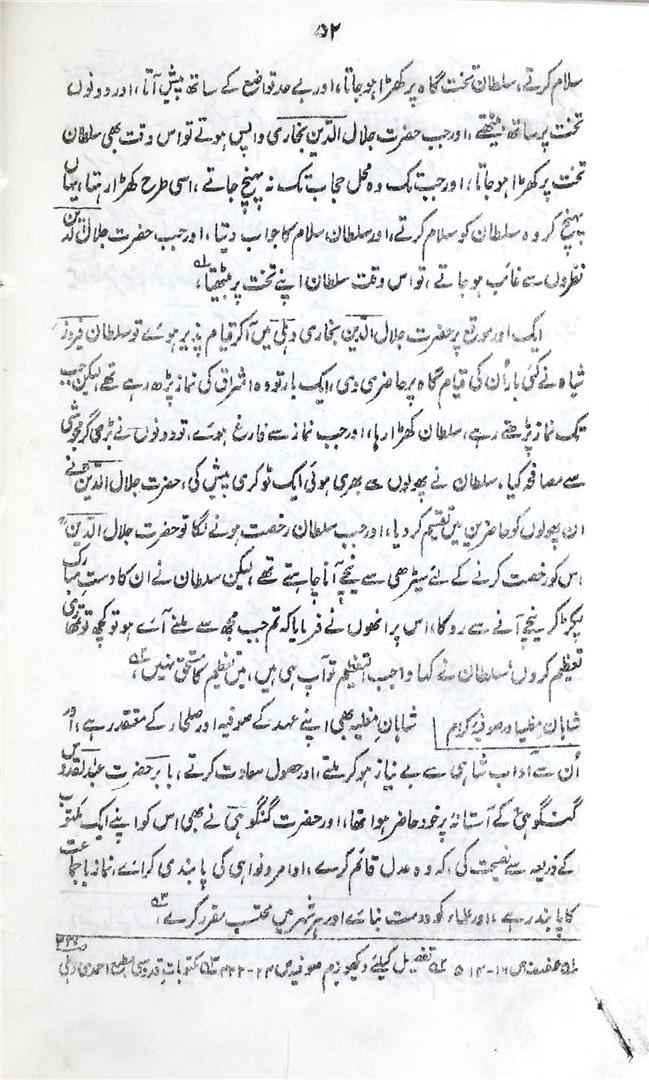 ۵۲
سلام کرتے، سلطان تخت گاہ پر کھڑا ہو جاتا، اور بے حد تواضع کے ساتھ پیش آتا، اور دونوں
تخت پر ساتھ بیٹھتے، اور جب حضرت جلال الدین بخاری واپس ہوتے تو اس وقت بھی سلطان
تخت پر کھڑا ہو جاتا، اور جب تک وہ محل حجاب تک نہ پہنچ جاتے، اسی طرح کھڑا رہتا، یہاں
پہنچ کر وہ سلطان کو سلام کرتے، اور سلطان سلام کا جواب دیتا، اور جب حضرت جلال الدین
نظروں سے غائب ہو جاتے، تو اس وقت سلطان اپنے تخت پر بیٹھتا، ؎۱
ایک اور موقع پر حضرت جلال الدین بخاری دہلی میں آکر قیام پذیر ہوئے تو سلطان فیروز
شاہ نے کئی بار اُن کی قیام گاہ پر حاضری دی، ایک بار تو وہ اشراق کی نماز پڑھ رہے تھے، لیکن جب
تک نماز پڑھتے رہے، سلطان کھڑا رہا، اور جب نماز سے فارغ ہوئے، تو دونوں نے بڑی گرمجوشی
سے مصافحہ کیا، سلطان نے پھولوں سے بھری ہوئی ایک ٹوکری پیش کی، حضرت جلال الدین نے
ان پھولوں کو حاضرین میں تقسیم کر دیا، اور جب سلطان رخصت ہونے لگا تو حضرت جلال الدین
اس کو رخصت کرنے کے لئے سیڑھی سے نیچے آنا چاہتے تھے، لیکن سلطان نے ان کا دست مبارک
پکڑ کر نیچے آنے سے روکا، اس پر انھوں نے فرمایا کہ تم جب مجھ سے ملنے آئے ہو تو کچھ تو تمھاری
تعظیم کروں، سلطان نے کہا واجب التعظیم تو آپ ہی ہیں، میں تعظیم کا مستحق نہیں، ؎۲
شاہان مغلیہ اور صوفیۂ کرام شاہان مغلیہ بھی اپنے عہد کے صوفیہ اور صلحاء کے معتقد رہے، اور
اُن سے آداب شاہی سے بے نیاز ہو کر ملتے، اور حصول سعادت کرتے، بابر حضرت عبدالقدوس
گنگوہیؒ کے آستانہ پر خود حاضر ہوا تھا، اور حضرت گنگوہیؒ نے بھی اس کو اپنے ایک مکتوب
کے ذریعہ سے نصیحت کی، کہ وہ عدل قائم کرے، اوامر و نواہی کی پابندی کرائے، نماز باجماعت
کا پابند رہے، اور علماء کو دوست بنائے اور ہر شہر میں محتسب مقرر کرے، ؎۳
؎۱ عفیف ص ۱۶-۵۱۴ ؎۲ تفصیل کیلئے دیکھو بزم صوفیہ ص ۲۴-۴۲۳ ؎۳ مکتوبات قدوسی مطبع احمدی دہلی